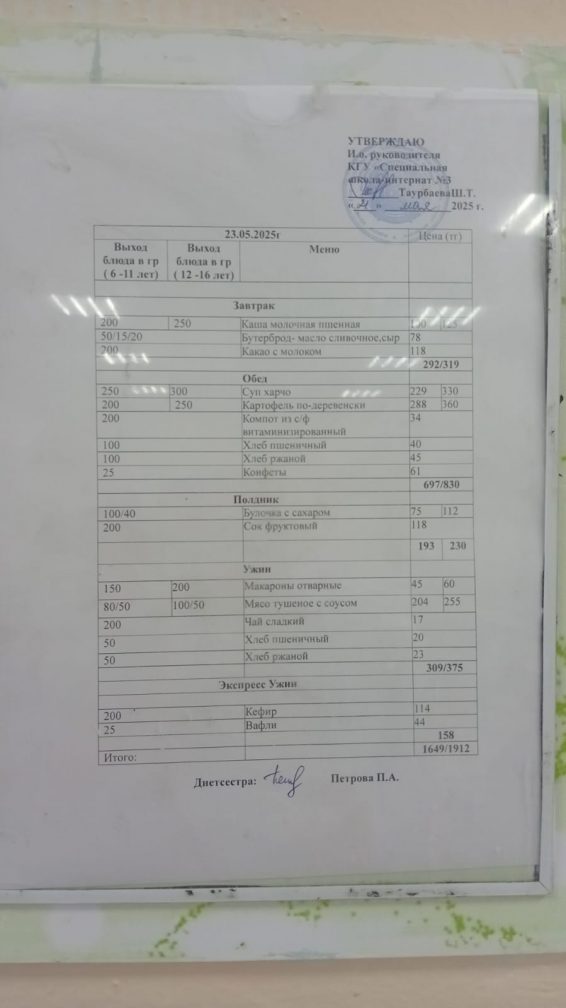 УТВЕРЖДАЮ
И.о. руководителя
КГУ «Специальная
школа-интернат №3
ТаурбаеваШ.Т.
«21» мая 2025 г.
23.05.2025г Цена (тг)
Выход Выход Меню
блюда в гр блюда в гр
( 6 -11 лет) ( 12 -16 лет)
Завтрак
200 250 Каша молочная пшенная
50/15/20 Бутерброд- масло сливочное,сыр 78
200 Какао с молоком 118
292/319
Обед
250 300 Суп харчо 229 330
200 250 Картофель по-деревенски 288 360
200 Компот из с/ф 34
витаминизированный
100 Хлеб пшеничный 40
100 Хлеб ржаной 45
25 Конфеты 61
697/830
Полдник
100/40 Булочка с сахаром 75 112
200 Сок фруктовый 118
193 230
Ужин
150 200 Макароны отварные 45 60
80/50 100/50 Мясо тушеное с соусом 204 255
200 Чай сладкий 17
50 Хлеб пшеничный 20
50 Хлеб ржаной 23
309/375
Экспресс Ужин
200 Кефир 114
25 Вафли 44
158
Итого: 1649/1912
Диетсестра: Петрова П.А.